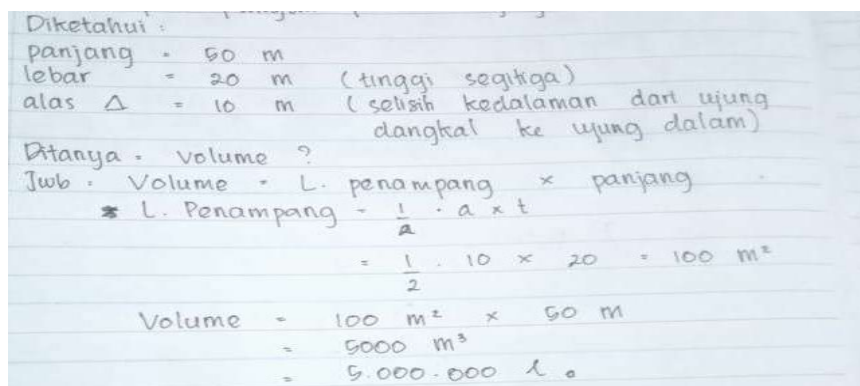 Diketahui :
panjang = 50 m
lebar = 20 m (tinggi segitiga)
alas Δ = 10 m (selisih kedalaman dari ujung
dangkal ke ujung dalam)
Ditanya = volume ?
Jwb = Volume = L. penampang × panjang
* L. Penampang = 1/2 · a × t
= 1/2 . 10 × 20 = 100 m²
Volume = 100 m² × 50 m
= 5000 m³
= 5.000.000 l.